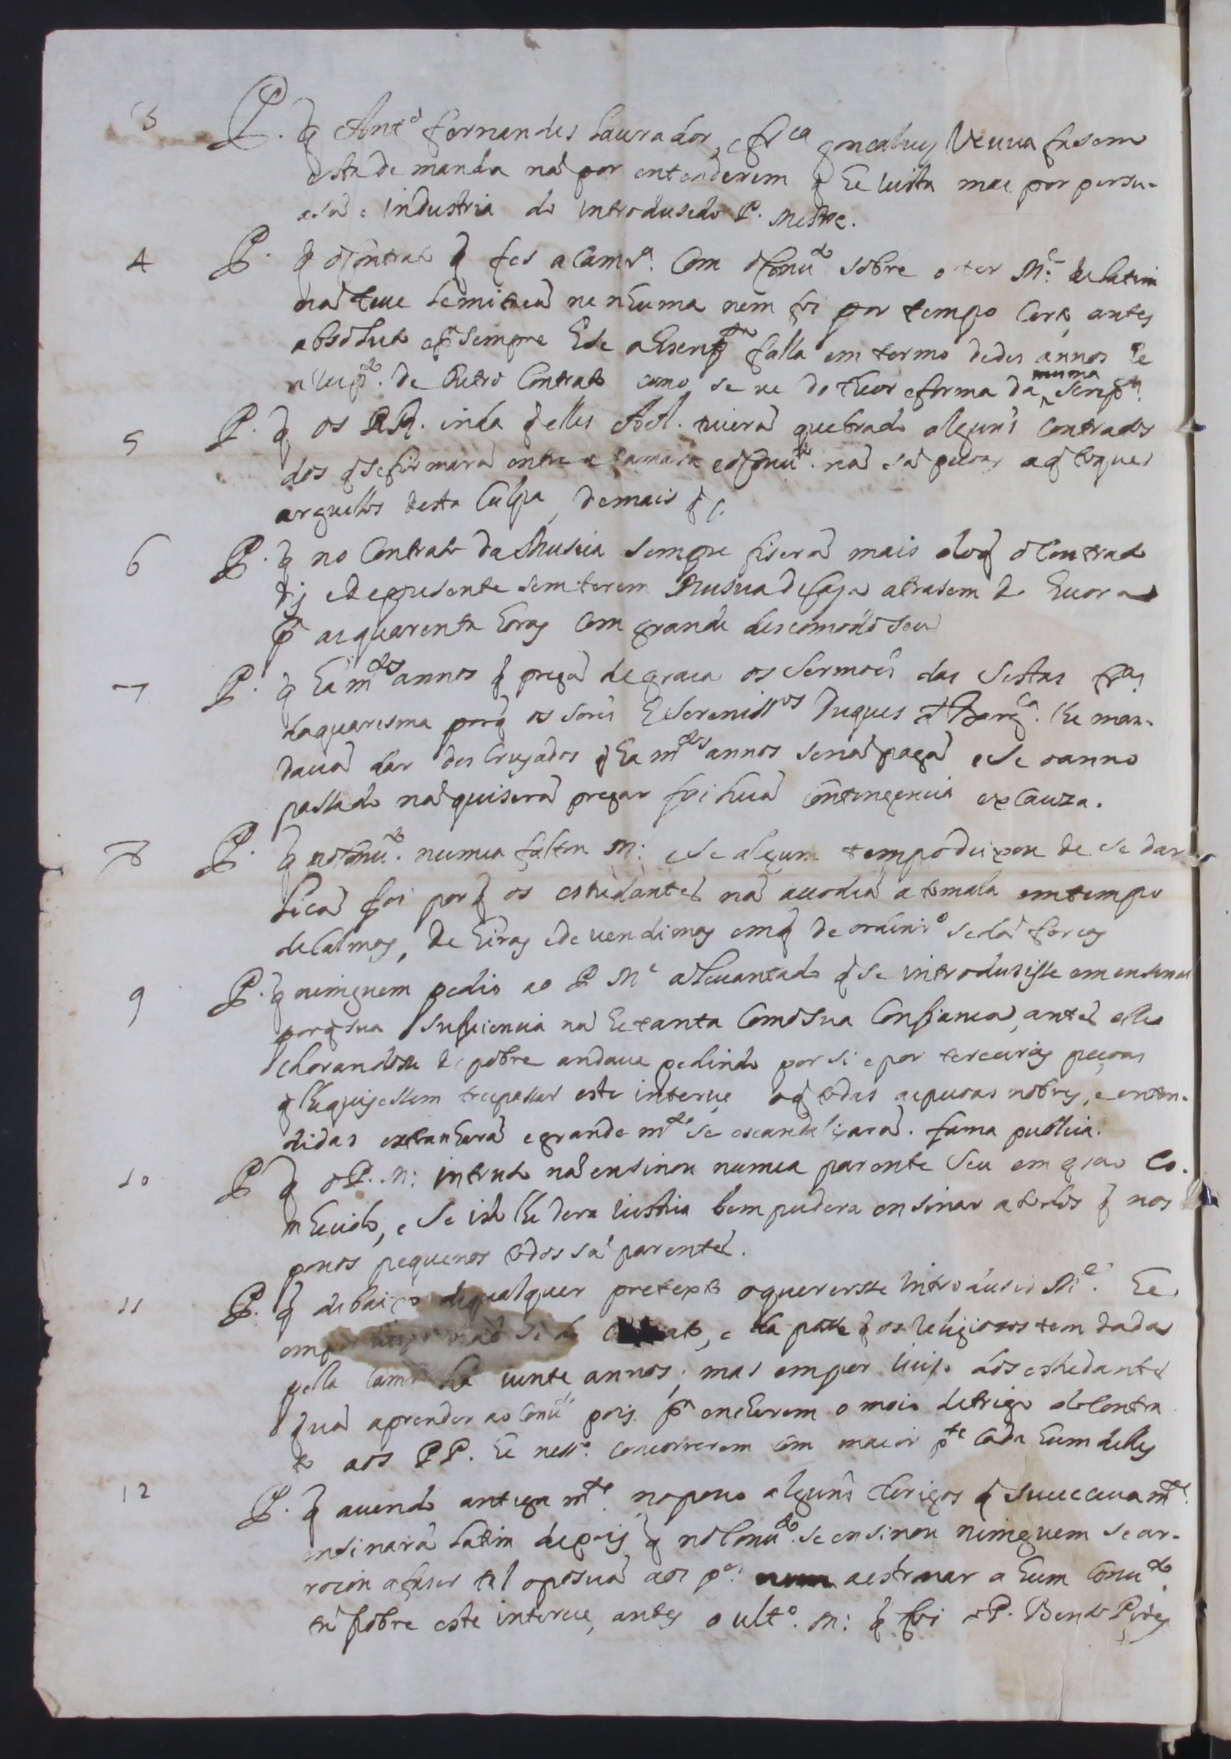 3 P. q̃ Antº fernandes Laurador, e frca gonçalues Veuua fasem
esta demanda nã por entenderem q̃ he iusta mas por persu-
asã e industria do introdusido P. Mestre.
4 P. q̃ o contrato q̃ fes a camrª. com o conuto sobre o ter M.e de latim
nã teue lemitaçã nenhuma nem foi por tempo certo, antes
absoluto e pª sempre E se a escriptra falla em termo de des annos he
de outro contrato como se ue do theor e forma da mesma script.
5 P. q̃ os RR. inda q̃ elles AA. tiuerã quebrado alguns contrados
dos q̃ se firmarã entre a camara e o conuto. nã sã peçoas a q̃ toque
arguillos desta culpa, demais q̃
6 P. q̃ no contrato da Musica sempre fiserã mais do q̃ o contrato
dis e de presente sem terem Musica de casa a trasem de Euora
pª as quarenta horas com grande descomodo seu
7 P. q̃ ha mtos annos q̃ pregã de graça os sermoẽs das sestas frªs
da quaresma porq̃ os sors E serenissos Duques de Bargça. lhe man-
dauã dar des crusados q̃ ha mtos annos se nã pagã e se o anno
passado nã quiserã pregar foi hua contingencia ex causa.
8 P. q̃ no conuto. numca faltou M: e se algum tempo deixou de se dar
liçã foi porq̃ os estudantes nã acodiã a tomala em tempo
de calmas, de Eiras e de uendimas em q̃ de ordinrº se dã ferias
9 P. q̃ nimguem pedio ao P. Me aleuantado q̃ se introdusisse em ensinar
porq̃ sua sufficiencia nã he tanta como sua confiança, antes elle
chorandosse de pobre andaua pedindo por si e por terceiras peçoas
q̃ lhe quisessem trespassar este interece a q̃ todas as peçoas nobres, e enten-
didas estranharã e grande mte se escandalizarã. fama publica.
10 P. q̃ o P. M: intruso nã ensinou numca parente seu em grao co-
nhecido, e se isto lhe dera iustiça bem pudera ensinar a todos q̃ nos
pouos pequenos todos sã parentes.
11 P. q̃ debaixo de qualquer pretexto o quererse introdusir Me. he
, e da posse q̃ os religiosos tem dada
pella camrª ha uinte annos; mas em per dos estudantes
q̃ uã aprender ao conuto pois pª encherem o moio de trigo do contra
to aos PP. he nessº. concorrerem com maior pte cada hum delles
12 P. q̃ auendo antiga mte. no pouo alguns clerigos q̃ sucecciua mte.
insinarã latim depois q̃ no conuto. se ensinou nimguem se ar-
roiou a faser tal oposiçã aos ps. a estrouar a hum conuto
tã pobre este interece, antes o ultº. M: q̃ foi o P. Bento Pires